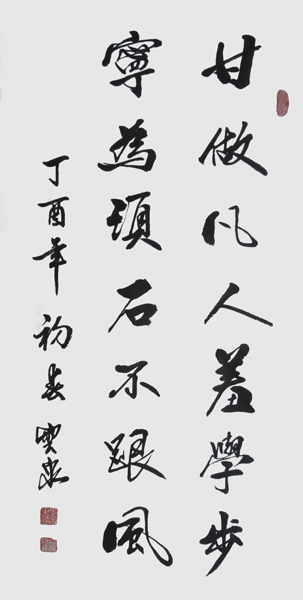 甘做凡人羞學步
寧為頑石不跟風
丁酉年初春